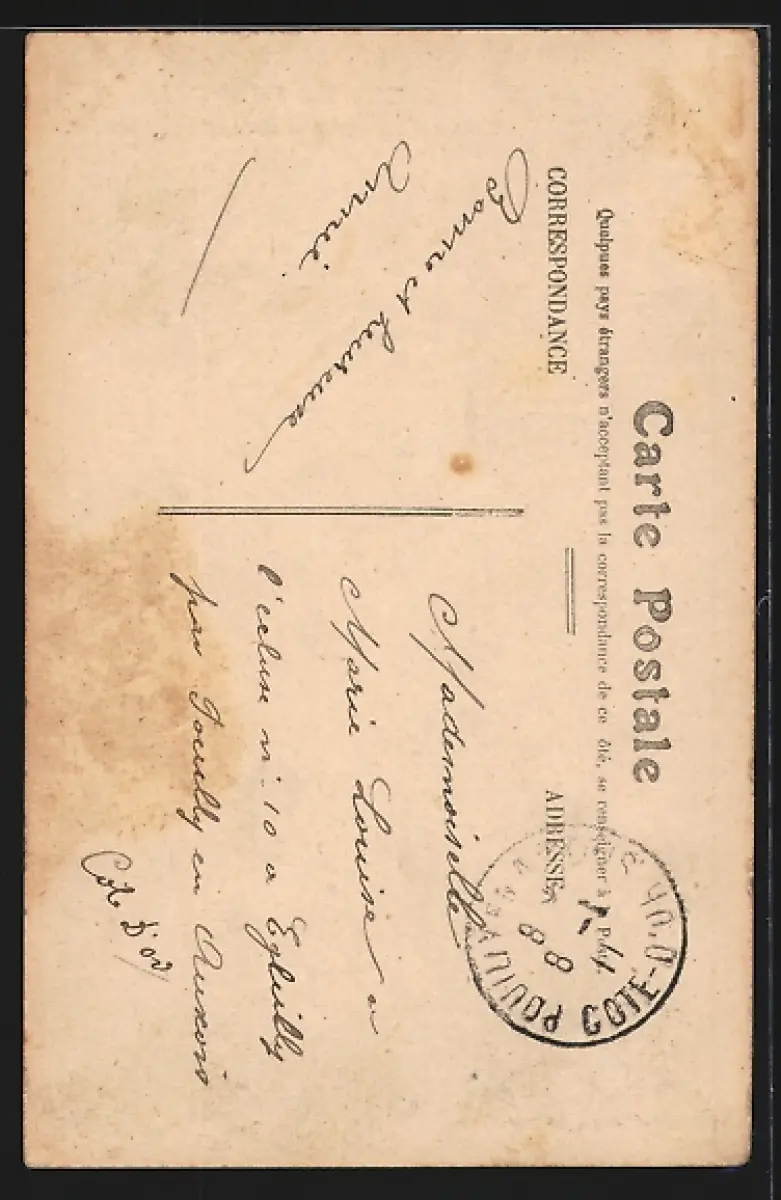 Carte Postale
Quelques pays étrangers n'acceptant pas la correspondance de ce côté, se renseigner à la Poste.
CORRESPONDANCE
ADRESSE
Bonne et heureuse
Année
Mademoiselle
Marie Louise a
l'écluse n° 10 a Eguilly
par Pouilly en Auxois
Côte D'or
POUILLY
COTE-D'OR